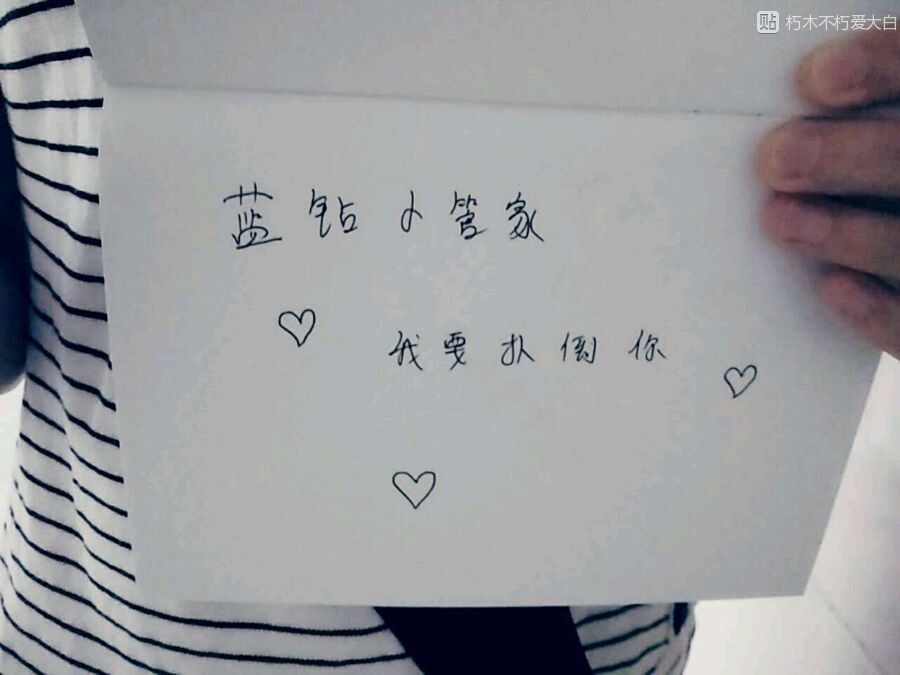 贴 朽木不朽爱大白
蓝钻小管家
我要扑倒你